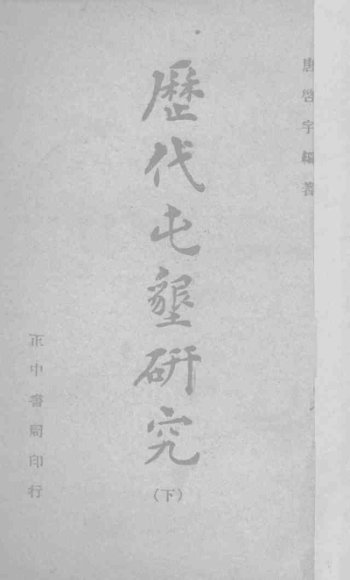 唐啓宇編著
歷代屯墾研究
（下）
正中書局印行